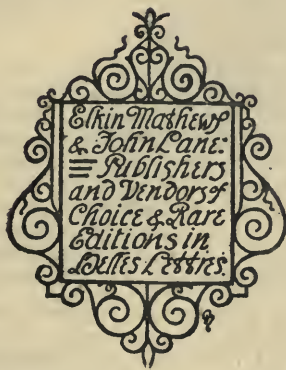 Elkin Mathews
& John Lane.
Publishers
and Vendors of
Choice & Rare
Editions in
Belles Lettres.